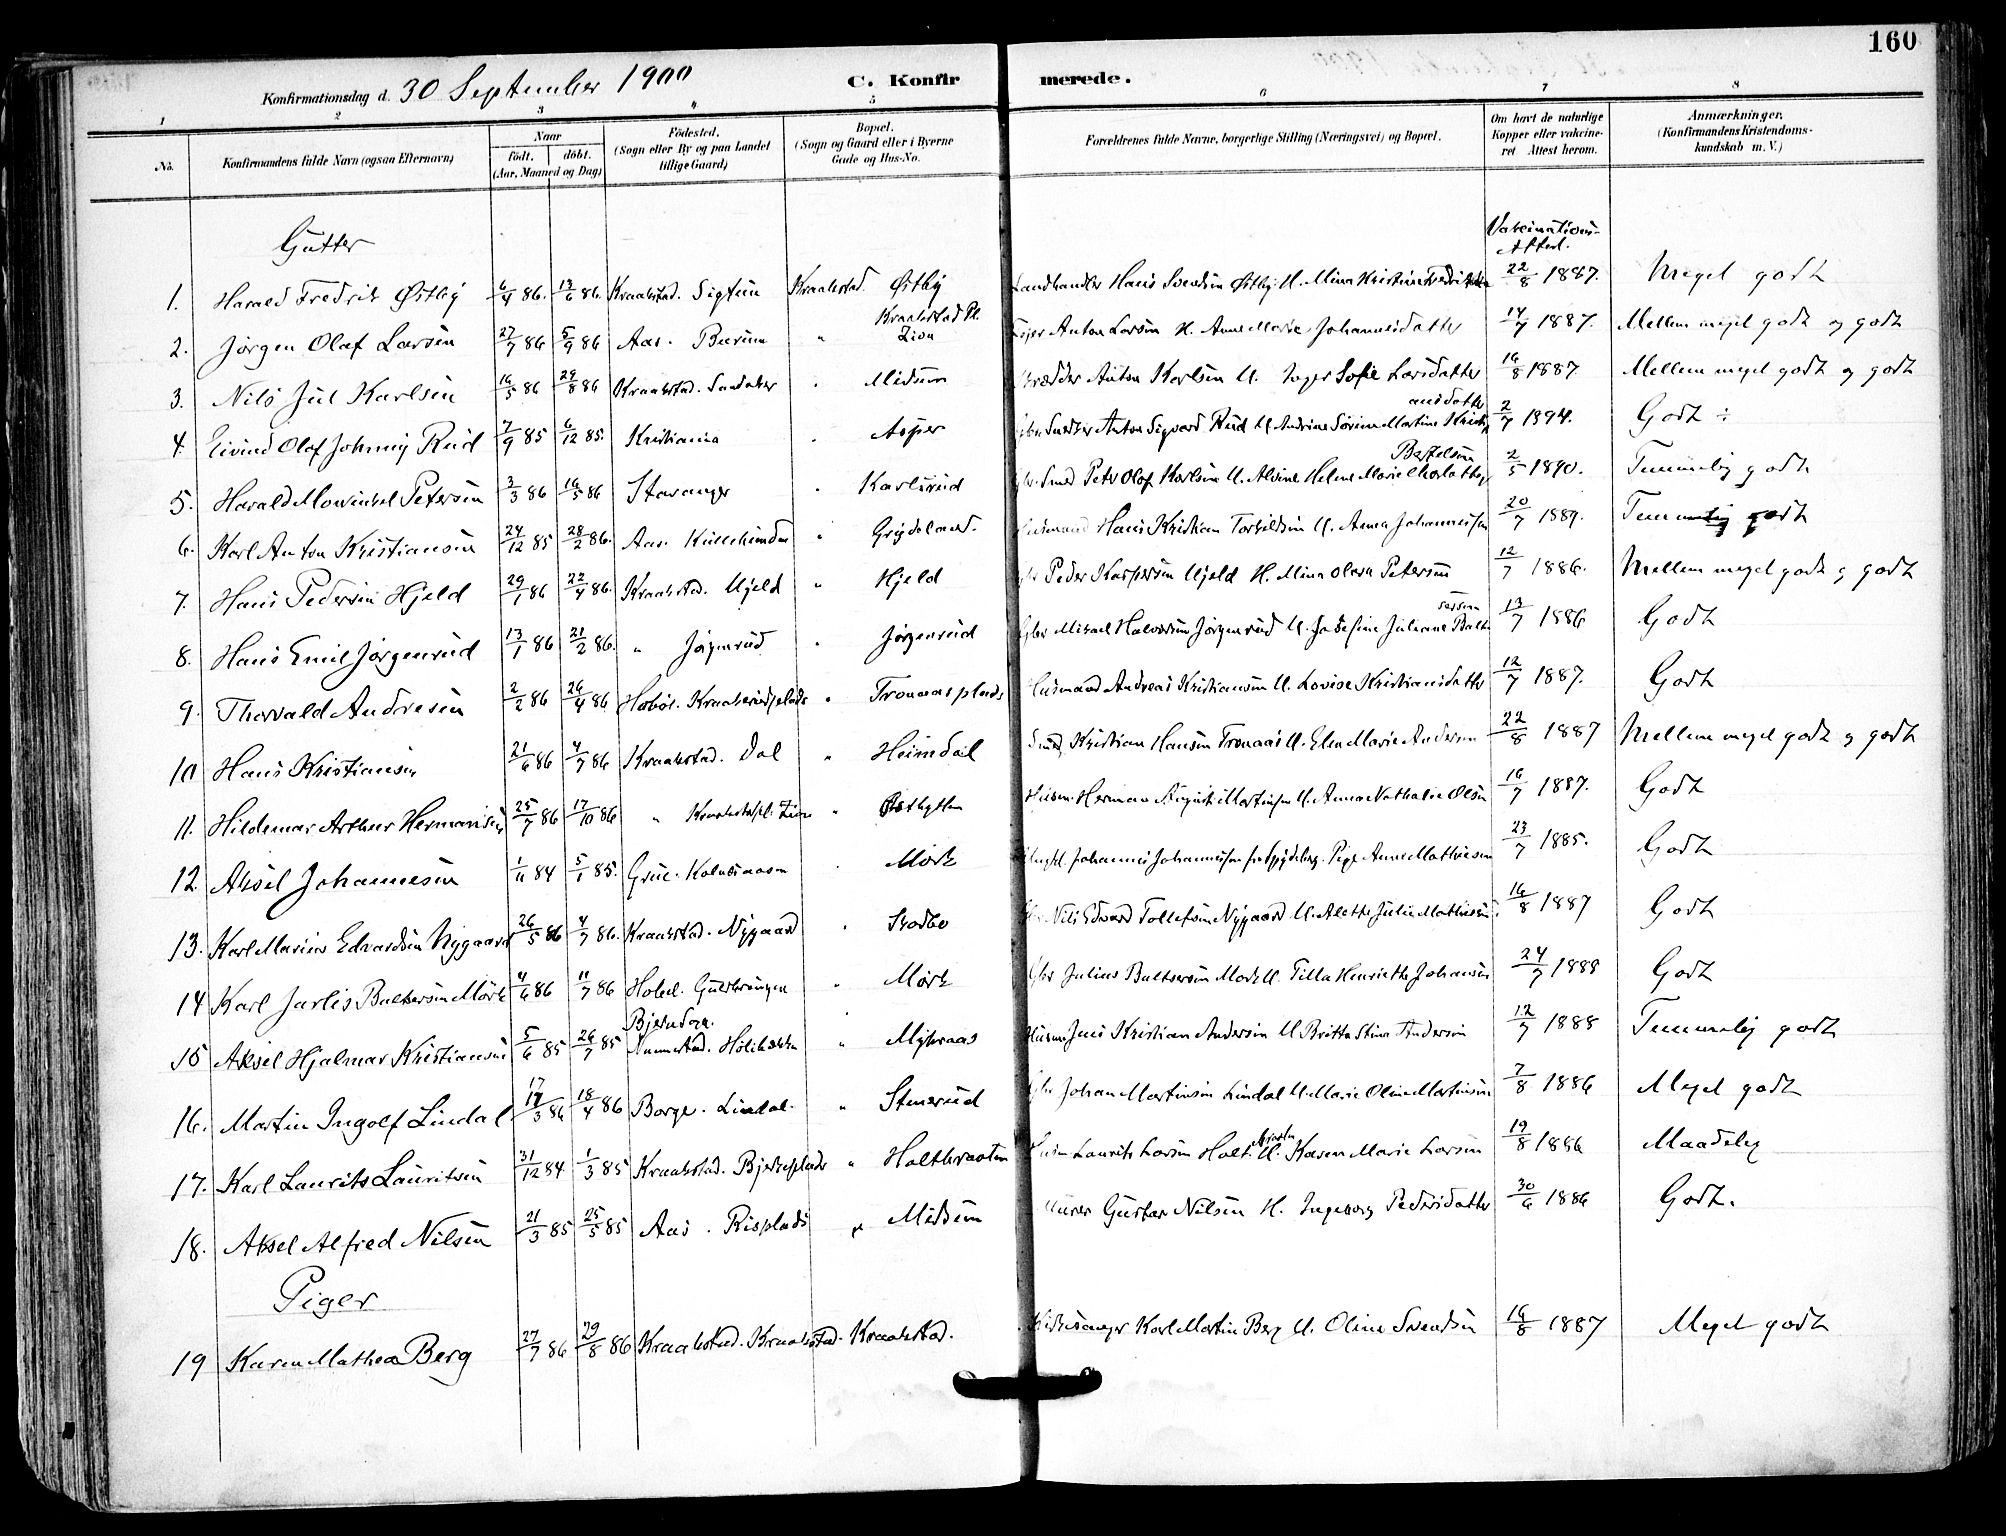 160
Konfirmationsdag d. 30 September 1900 C. Konfirmerede.
1 2 3 4 5 6 7 8
No. Konfirmandens fulde Navn (ogsaa Efternavn) Naar født. døbt. (Aar, Maaned og Dag) Fødested. (Sogn eller By og paa Landet tillige Gaard) Bopæl. (Sogn og Gaard eller i Byerne Gade og Hus-No. Forældrenes fulde Navne, borgerlige Stilling (Næringsvei) og Bopæl. Om havt de naturlige Kopper eller vakcineret Attest herom. Anmærkninger. (Konfirmandens Kristendomskundskab m. V.)
Gutter
Vakcinations-
Attest.
1. Harald Fredrik Østby 6/4 86. 13/6 86. Kraakstad. Sigtun Kraakstad. Østby Landhandler Hans Svendsen Østby H. Mina Kristine 22/8 1887. Meget godt
2. Jørgen Olaf Larsen 27/7 86 5/9 86 Aas. " Kraakstad Pl. Zion Anton Larsen H. Anne Marie Johannesdatter 14/7 1887. Mellem meget godt og godt
3. Nils Jul Karlsen 16/5 86 29/8 86 Kraakstad. Sandaker " Midsem Anton Karlsen H. Inger Sofie Larsdatter 16/8 1887 Mellem meget godt og godt
4. Eivind Olaf Johnny Rud 7/9 85 6/12 85. Kristiania " Asper Anton Sigvard Rud H. Andrine Sørine Martine Kristiansdatter 2/7 1894. Godt ÷
5. Harald Mowinkel Petersen 3/3 86 16/5 86 Stavanger " Karlsrud Smed Peter Olaf Karlsen H. Alvine Helene Marie Bertelsen 2/5 1890. Temmelig godt
6. Karl Anton Kristiansen 24/12 85 28/2 86. Aas. " Grydeland Husmand Hans Kristian Torkildsen H. Anna Johannessen 20/7 1889. Temmelig godt
7. Hans Pedersen Hjeld 29/1 86 22/4 86. Kraakstad. Hjeld " Hjeld Gbr Peder Kaspersen Hjeld H. Mina Olava Petersen 12/7 1886. Mellem meget godt og godt
8. Hans Emil Jørgenrud 13/1 86 21/2 86. " Jørgenrud " Jørgenrud Gbr Misael Halvorsen Jørgenrud H. Josefine Juliane Baltsersen 13/7 1886 Godt
9. Thorvald Andresen 2/2 86 26/4 86 Hobøl. " Tronaasplads Husmand Andreas Kristiansen H. Lovise Kristiansdatter 12/7 1887. Godt
10 Hans Kristiansen 21/6 86 4/7 86 Kraakstad. Dal " Heimdal Smed Kristian Hansen Tronaas H. Elen Marie Andersen 22/8 1887 Mellem meget godt og godt
11. Hildemar Arthur Hermansen 25/7 86 17/10 86 " Kraakstadpl. Zion " Husm. Herman August Martinsen H. Anna Nathalie Olsen 16/7 1887. Godt
12. Aksel Johannesen 1/11 84 5/1 85. Grue. " Mørk Ungkl. Johannes Johannessen fra Spydeberg. Pige Anne Mathiesen 23/7 1885. Godt
13. Karl Marius Edvardsen Nygaard 26/5 86 4/7 86. Kraakstad. Nygaard " Skodbo Gbr Nils Edvard Tollefsen Nygaard H. Alette Julie Mathiesen 16/8 1887 Godt
14 Karl Jarlis Baltsersen Mørk 4/6 86 11/7 86 Hobøl. " Mørk Gbr Julius Baltsersen Mørk H. Tilla Henriette Johansen 24/7 1888 Godt
15 Aksel Hjalmar Kristiansen 5/6 85 26/7 85 " Myhraas Husm Jens Kristian Andersen H. Britta Stina Andersen 12/7 1888 Temmelig godt
16. Martin Ingolf Lindal 17/3 86 18/4 86 Borge. Lindal. " Stenerud Gbr Johan Martinsen Lindal H. Marie Oline Martinsen 7/8 1886 Meget godt
17. Karl Laurits Lauritsen 31/12 84 1/3 85 Kraakstad. Bjerkeplads " Holtbraaten Husm Laurits Larsen Holt H. Karen Marie Larsen 19/8 1886 Maadelig
18. Aksel Alfred Nilsen 21/3 85 25/5 85 Aas. Risplads " Midsem Murer Gustav Nilsen H. Ingeborg Pedersdatter 30/6 1886 Godt.
Piger
19 Karen Mathea Berg 27/7 86 29/8 86 Kraakstad. Kraakstad. Kraakstad. Kirkesanger Karl Martin Berg H. Oline Svendsen 16/8 1887 Meget godt